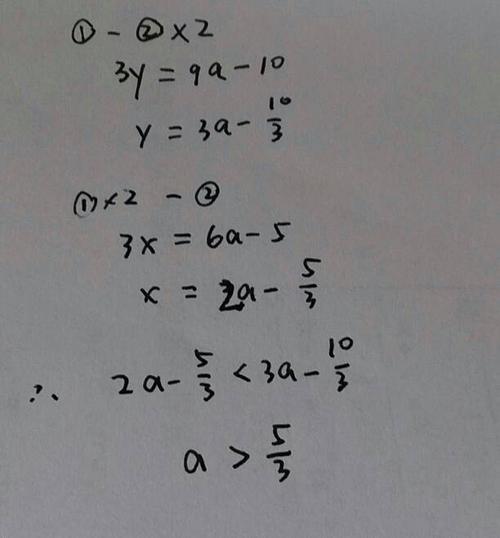 ① - ② × 2
3y = 9a - 10
y = 3a - 10/3
① × 2 - ②
3x = 6a - 5
x = 2a - 5/3
∴ 2a - 5/3 < 3a - 10/3
a > 5/3